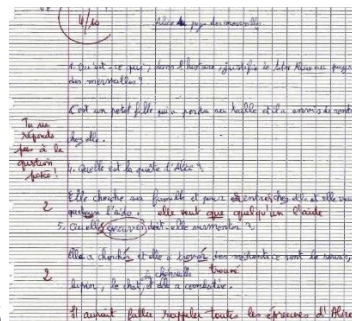 4/10
Alice au pays des merveilles
4. Qu'est-ce qui, dans l'histoire, justifie le titre Alice au pays
des merveilles ?
C'est un petit fille qui a perdu sa famille et il a envie de rentré
Tu ne
réponds
pas à la
question
posée !
chez elle.
4. Quelle est la quête d'Alice ?
2
Elle cherche sa famille et pour rentrer chez elle et elle veut
quelqu'un l'aide. elle veut que quelqu'un l'aide
5. Quelles épreuves doit-elle surmonter ?
2
Elle a cherché et elle a trouvé des
trouvé
la chenille
lapin, le chat, et elle a
Il aurait fallu rappeler toutes les épreuves d'Alice